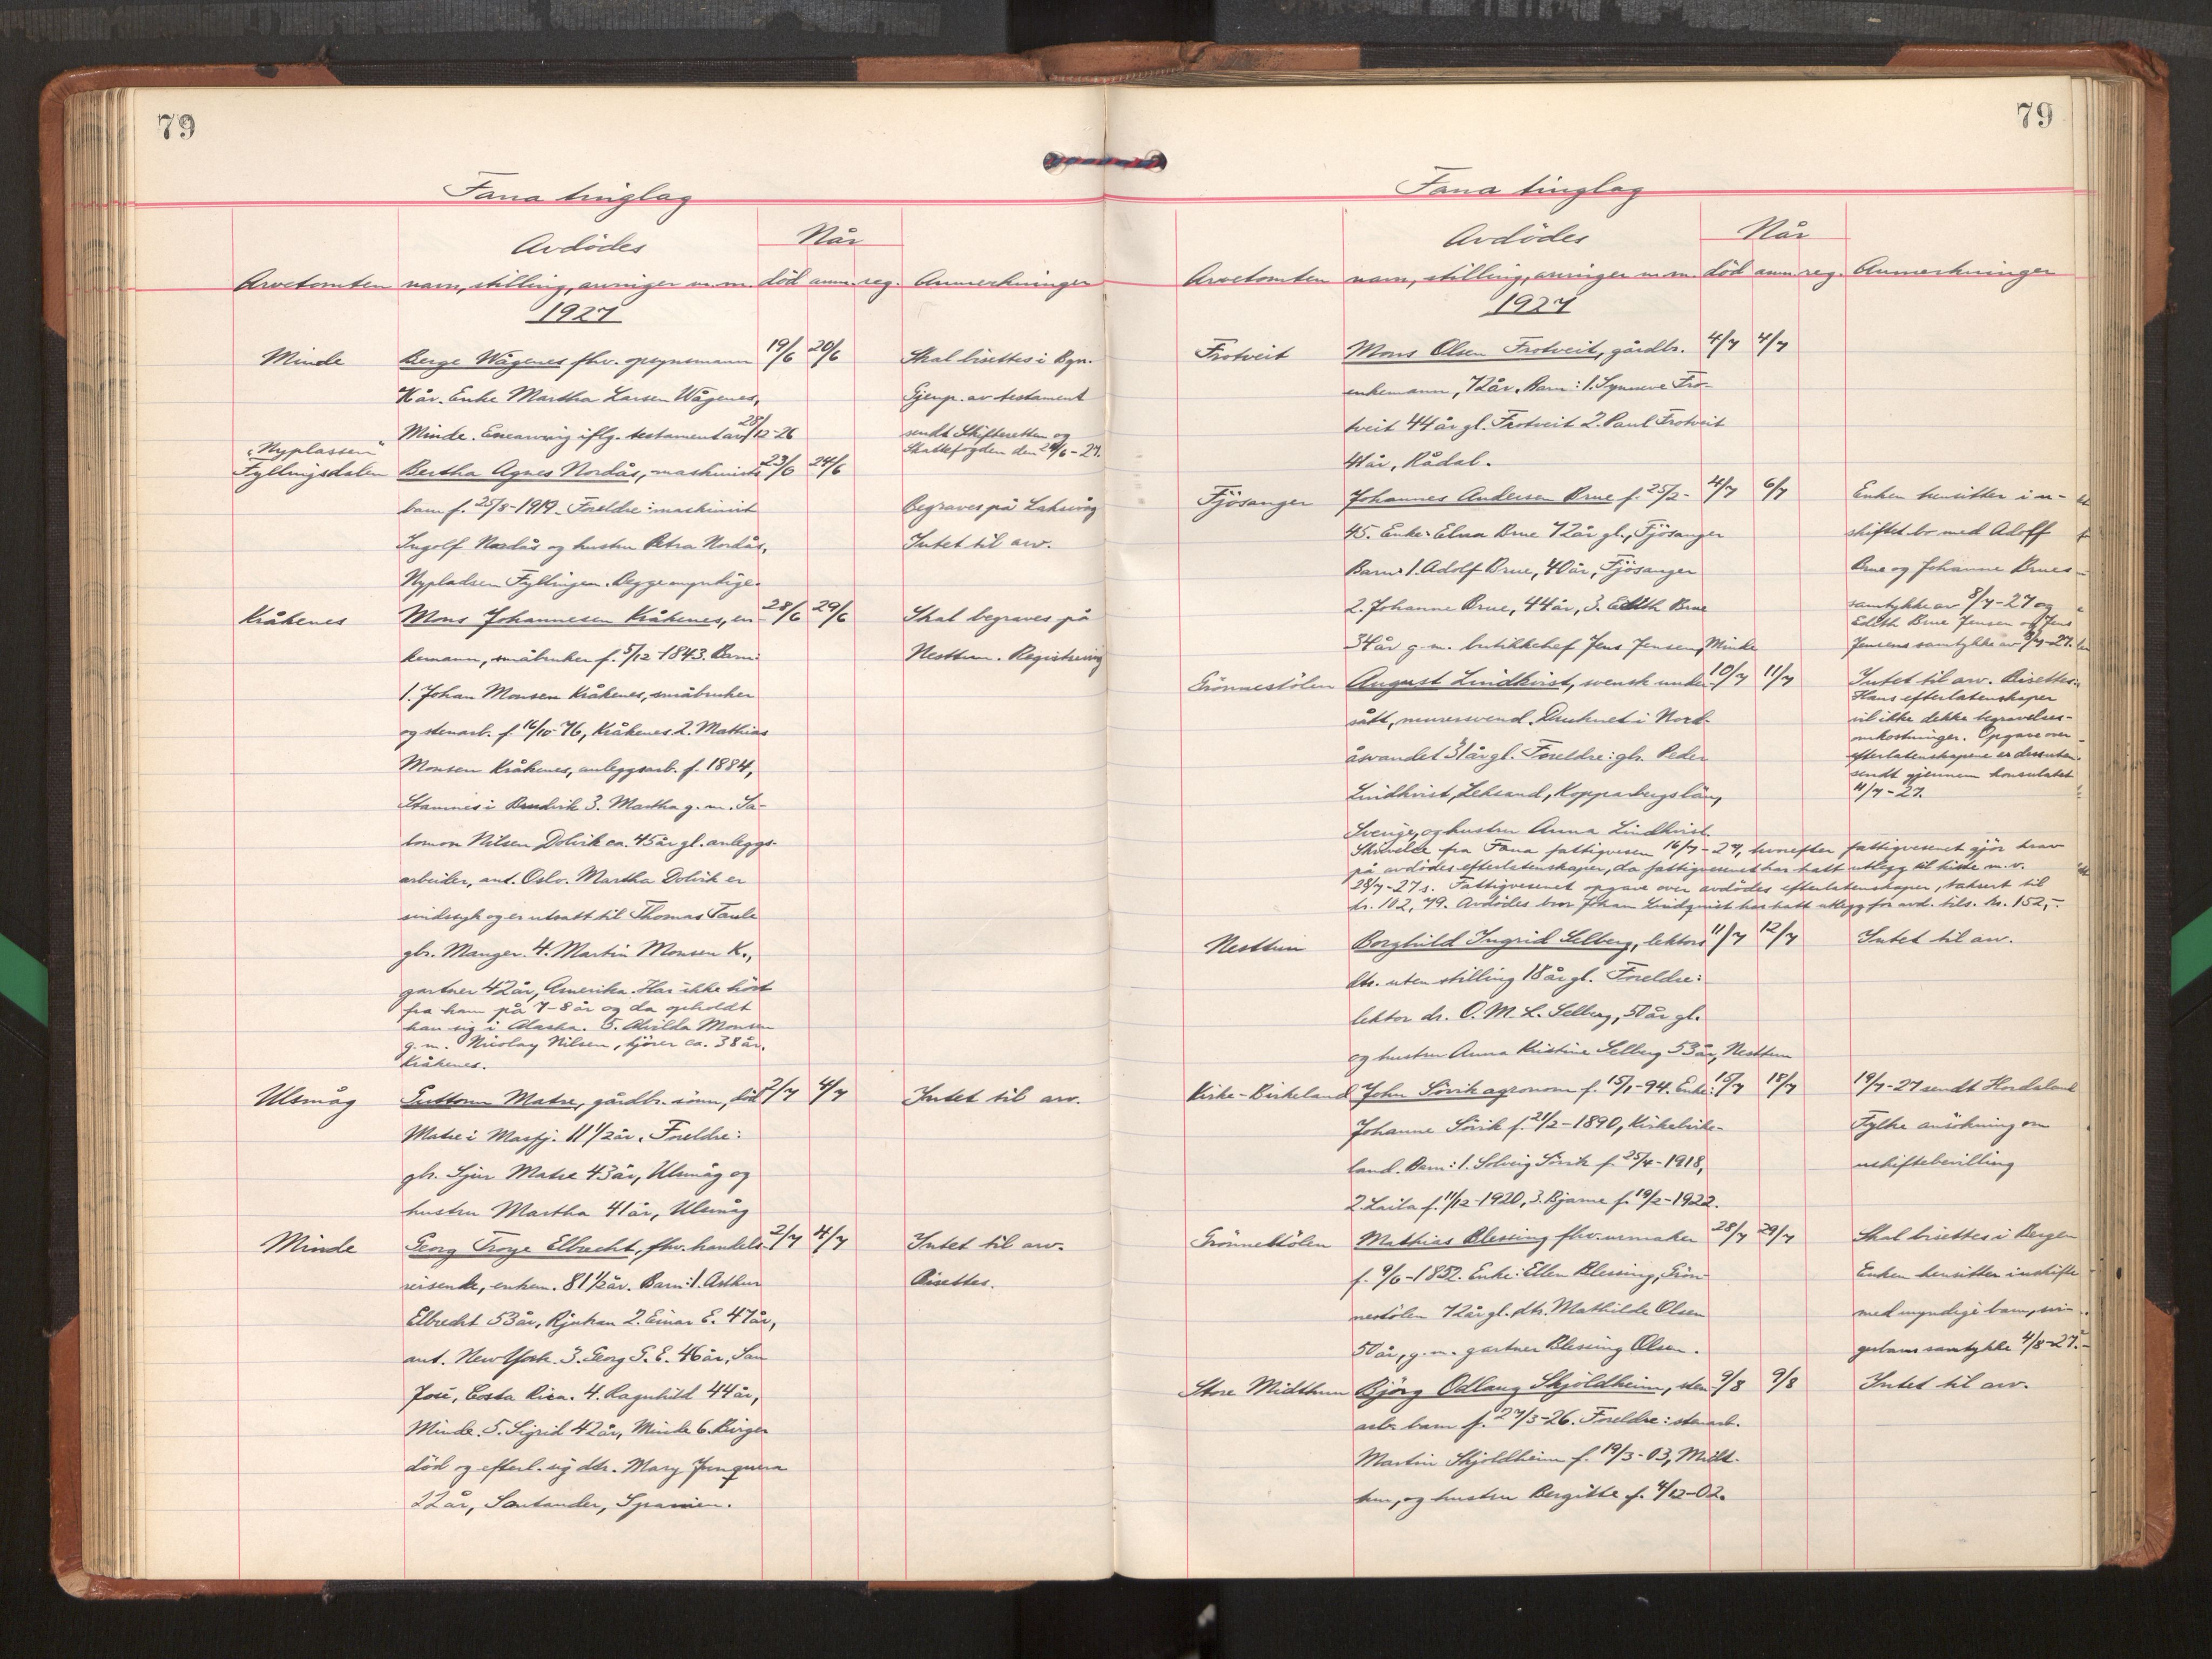 79
Fana tinglag
Avdödes
Når
Arvetomten navn, stilling, arvinger m.m. död anm. reg. Anmerkninger
1927
Minde Berge Wågenes fhv. opsynsmann 19/6 20/6 Skal bisettes i Bgn.
år. Enke Martha Larsen Wågenes, Gjenp. av testament
Minde. Enearving iflg. testament av 28/12-26 sendt Skifteretten og
"Nyplassen" Skattefogden den 24/6-27.
Fyllingsdalen Bertha Agnes Nordås, maskinists 23/6 24/6
barn f. 25/8-1919. Foreldre: maskinist Begraves på Laksevåg
Ingolf Nordås og hustru Petra Nordås, Intet til arv.
Nypladsen Fyllingen. Begge myndige.
Kråkenes Mons Johannesen Kråkenes, en- 28/6 29/6 Skal begraves på
kemann, småbruker f. 5/12-1843. Barn: Nesttun. Registrering
1. Johan Monsen Kråkenes, småbruker
og stenarb. f. 16/10-76, Kråkenes 2. Mathias
Monsen Kråkenes, anleggsarb. f. 1884,
Stamnes i Bruvik 3. Martha g.m. Sa-
lomon Nilsen Dolvik ca. 45 år gl. anleggs-
arbeider, ant. Oslo. Martha Dolvik er
sindssyk og er utsatt til Thomas
gbr. Manger. 4. Martin Monsen K.,
gartner 42 år, Amerika. Har ikke hört
fra ham på 7-8 år og da opholdt
han sig i Alaska. 5. Alvilda Monsen
g.m. Nicolay Nilsen, kjörer ca. 38 år,
Kråkenes.
Ulsmåg Guttorm Matre, gårdbr. sönn, död 2/7 4/7 Intet til arv.
Matre i Masfj. 11 1/2 år. Foreldre:
gbr. Sjur Matre 43 år, Ulsmåg og
hustru Martha 41 år, Ulsmåg
Minde Georg Troye Elbrecht, fhv. handels- 2/7 4/7 Intet til arv.
reisende, enkem. 81 1/2 år. Barn: 1. Arthur Bisettes.
Elbrecht 53 år, Rjukan 2. Einar E. 47 år,
ant. New York. 3. Georg G. E. 46 år, San
José, Costa Rica. 4. Ragnhild 44 år,
Minde. 5. Sigrid 42 år, Minde 6. Birger
död og efterl. sig dtr. Mary Junquera
22 år, Santander, Spanien.
79
Fana tinglag
Avdödes
Når
Arvetomten navn, stilling, arvinger m.m. död anm. reg. Anmerkninger
1927
Frotveit Mons Olsen Frotveit, gårdbr. 4/7 4/7
enkemann, 72 år. Barn: 1. Synneve Fro-
tveit 44 år gl. Frotveit 2. Paul Frotveit
41 år, Rådal.
Fjösanger Johannes Andersen Brue f. 25/2- 4/7 6/7 Enken hensitter i u-
45. Enke: Elna Brue 72 år gl., Fjösanger skiftet bo med Adolf
Barn: 1. Adolf Brue, 40 år, Fjösanger Brue og Johanne Brues
2. Johanne Brue, 44 år, 3. Edith Brue samtykke av 8/7-27 og
Edith Brue Jensen og Jens
34 år g.m. butikkchef Jens Jensen, Minde Jensens samtykke av 9/7-27.
Grönnestölen August Lindkvist, svensk under- 10/7 11/7 Intet til arv. Bisettes.
sått, murersvend. Druknet i Nord- Hans efterlatenskaper
vil ikke dekke begravelses-
åsvandet 31 år gl. Foreldre: gbr. Peder omkostninger. Opgave over
efterlatenskapene er dessuten
Lindkvist, Leksand, Kopparbergs län, sendt gjennem konsulatet
11/7-27.
Sverige, og hustru Anna Lindkvist.
Skrivelse fra Fana fattigvesen 16/7-27, hvorefter fattigvesenet gjör krav
på avdödes efterlatenskaper, da fattigvesenet har hatt utlegg til kiste m.v.
28/7-27 s. Fattigvesenet opgave over avdödes efterlatenskaper, taksert til
kr. 102,79. Avdödes bror Johan Lindqvist har hatt utlegg for avd. tils. kr. 152,-.
Nesttun Borghild Ingrid Selberg, lektors 11/7 12/7 Intet til arv.
dtr. uten stilling 18 år gl. Foreldre:
lektor dr. O. M. L. Selberg, 50 år gl.
og hustru Anna Kristine Selberg 53 år, Nesttun
Kirke-Birkeland John Sörvik agronom f. 15/1-94. Enke: 15/7 18/7 19/7-27 sendt Hordaland
Johanne Sörvik f. 21/2-1890, Kirkebirke- Fylke ansökning om
land. Barn: 1. Solveig Sörvik f. 25/4-1918, uskiftebevilling
2. Laila f. 11/12-1920, 3. Bjarne f. 19/2-1922.
Grönnestölen Mathias Blessing fhv. urmaker 28/7 29/7 Skal bisettes i Bergen
f. 9/6-1852. Enke: Ellen Blessing, Grön- Enken hensitter i uskifte
nestölen 72 år gl. dtr. Mathilde Olsen med myndige barn, svi-
50 år, g.m. gartner Blessing Olsen. gerbarns samtykke 4/8-27.
Store Midttun Björg Odlaug Skjoldheim, sten- 9/8 9/8 Intet til arv.
arb. barn f. 27/3-26. Foreldre: stenarb.
Martin Skjoldheim f. 19/3-03, Midt-
tun, og hustru Bergitte f. 4/12-02.